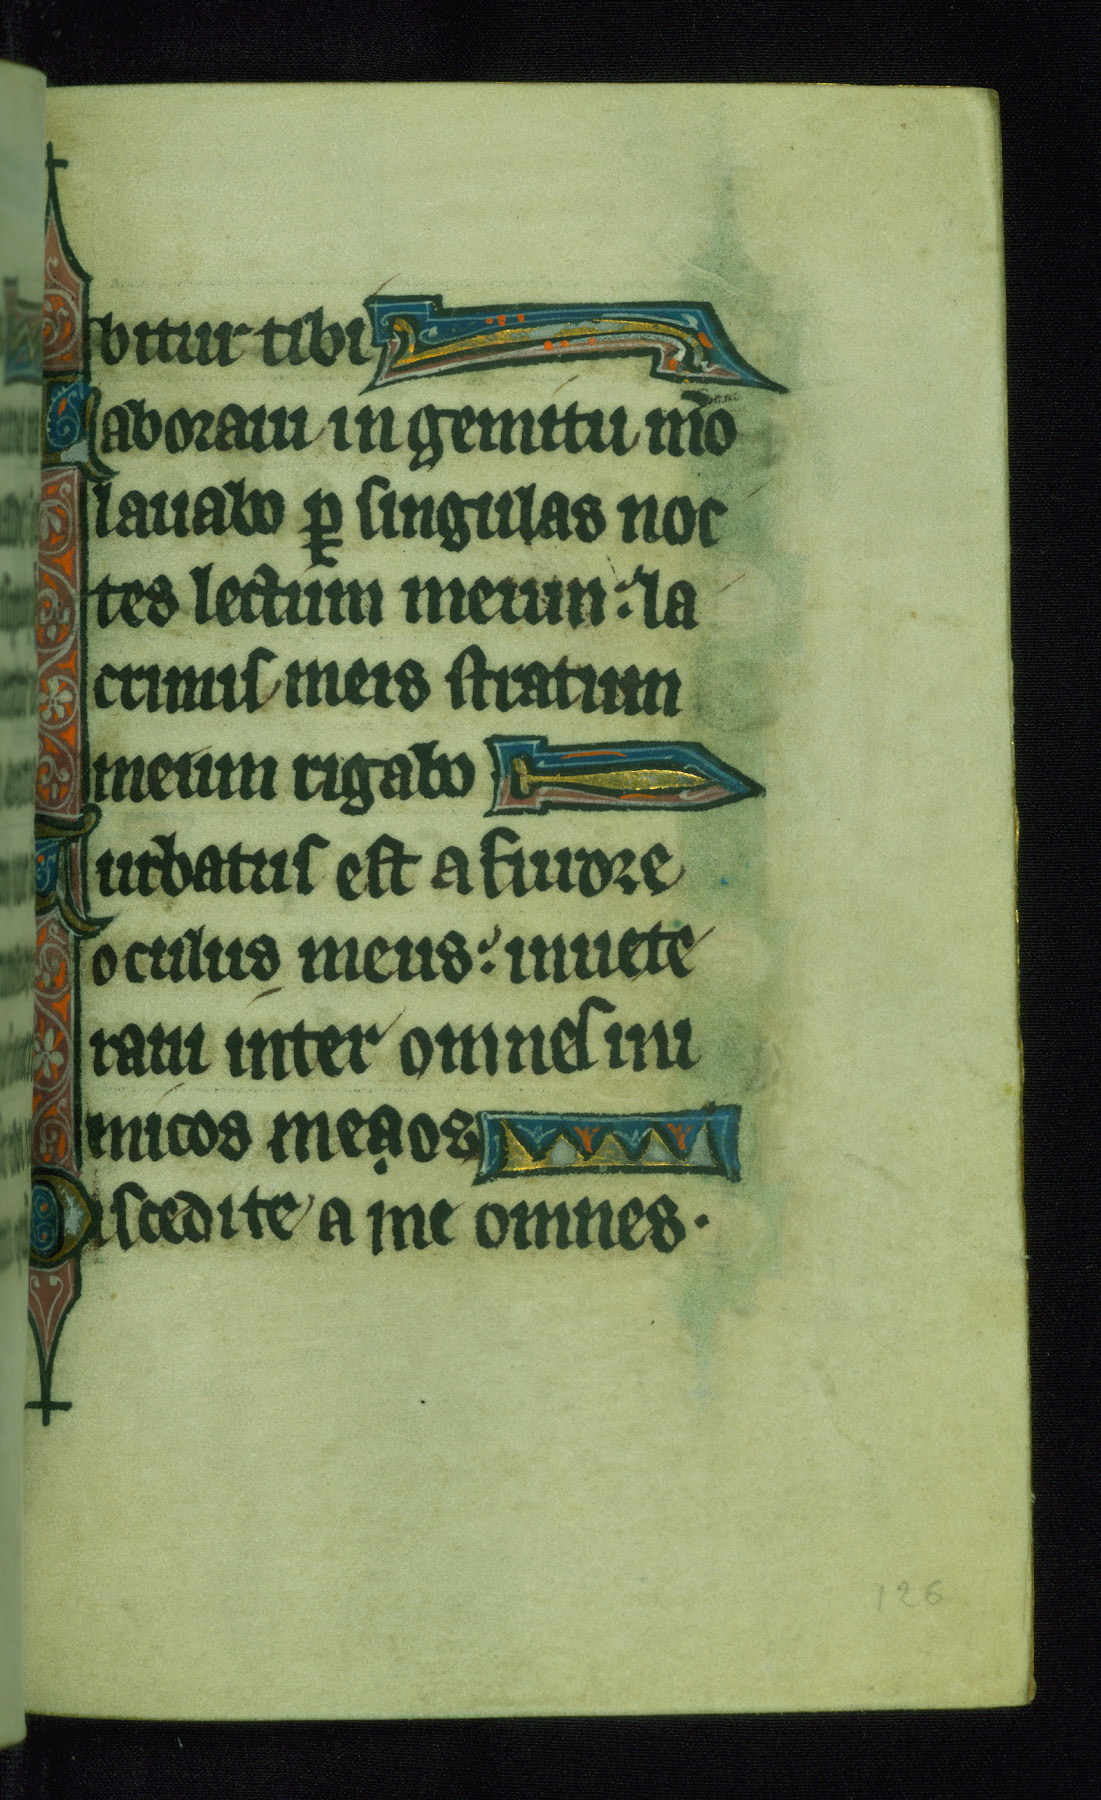 bitur tibi
Laboraui in gemitu mo
lauabo per singulas noc
tes lectum meum: la
crimis meis stratum
meum rigabo
Turbatus est a furore
oculus meus: inuete
raui inter omnes ini
micos meaos
Discedite a me omnes.
126